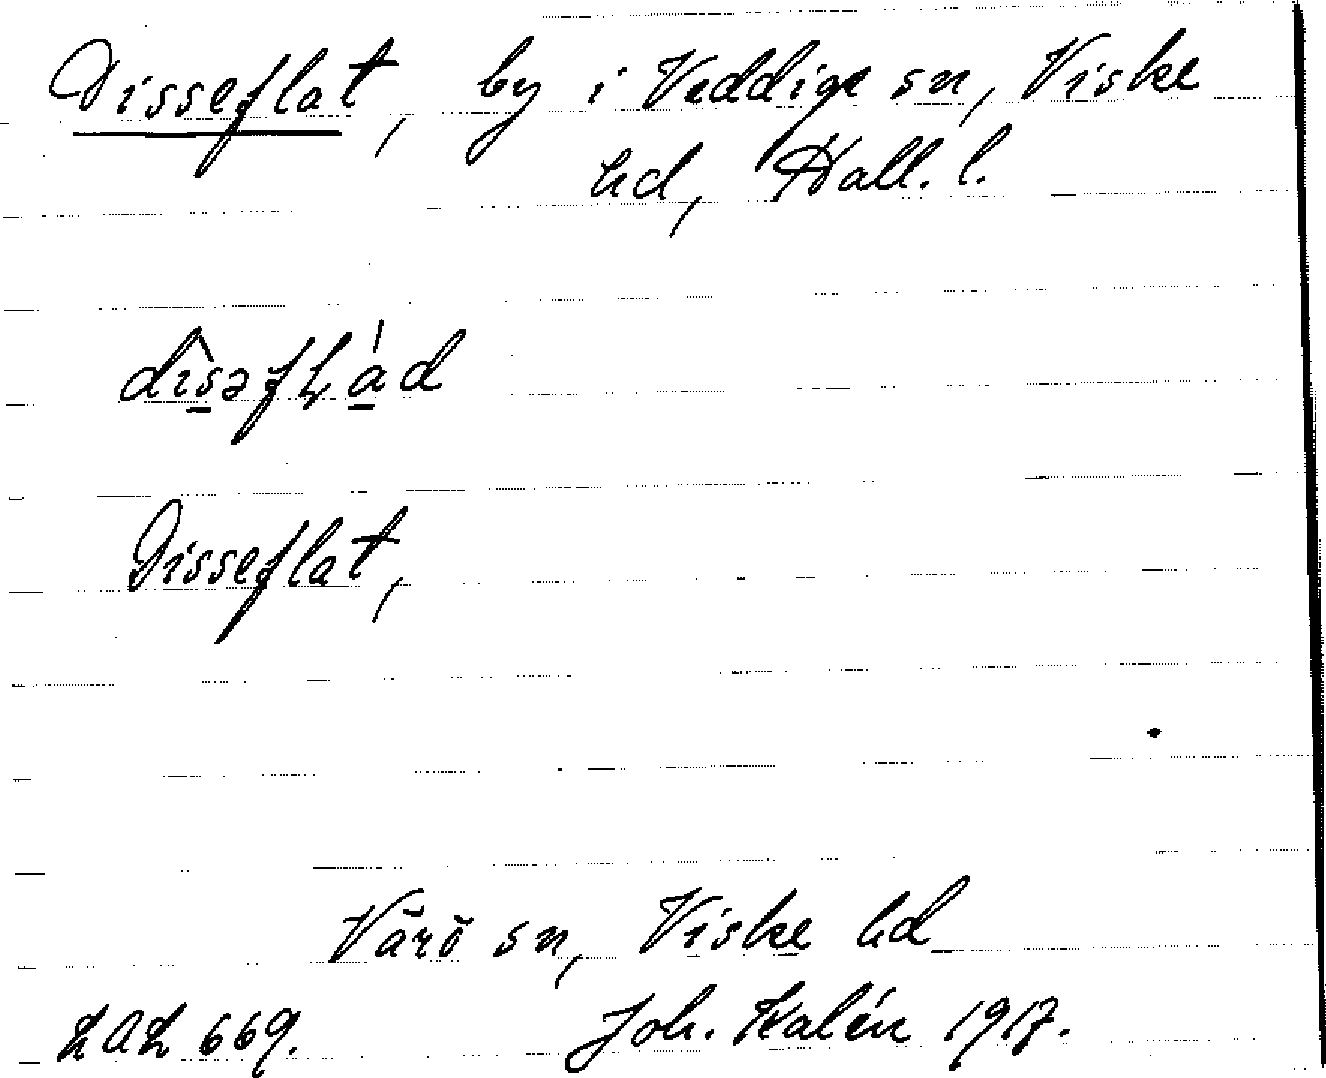 Disseflat, by i Veddige sn, Viske
hd, Hall. l.
Disseflat,
Värö sn, Viske hd
LAL 669. Joh. Kalén 1917.